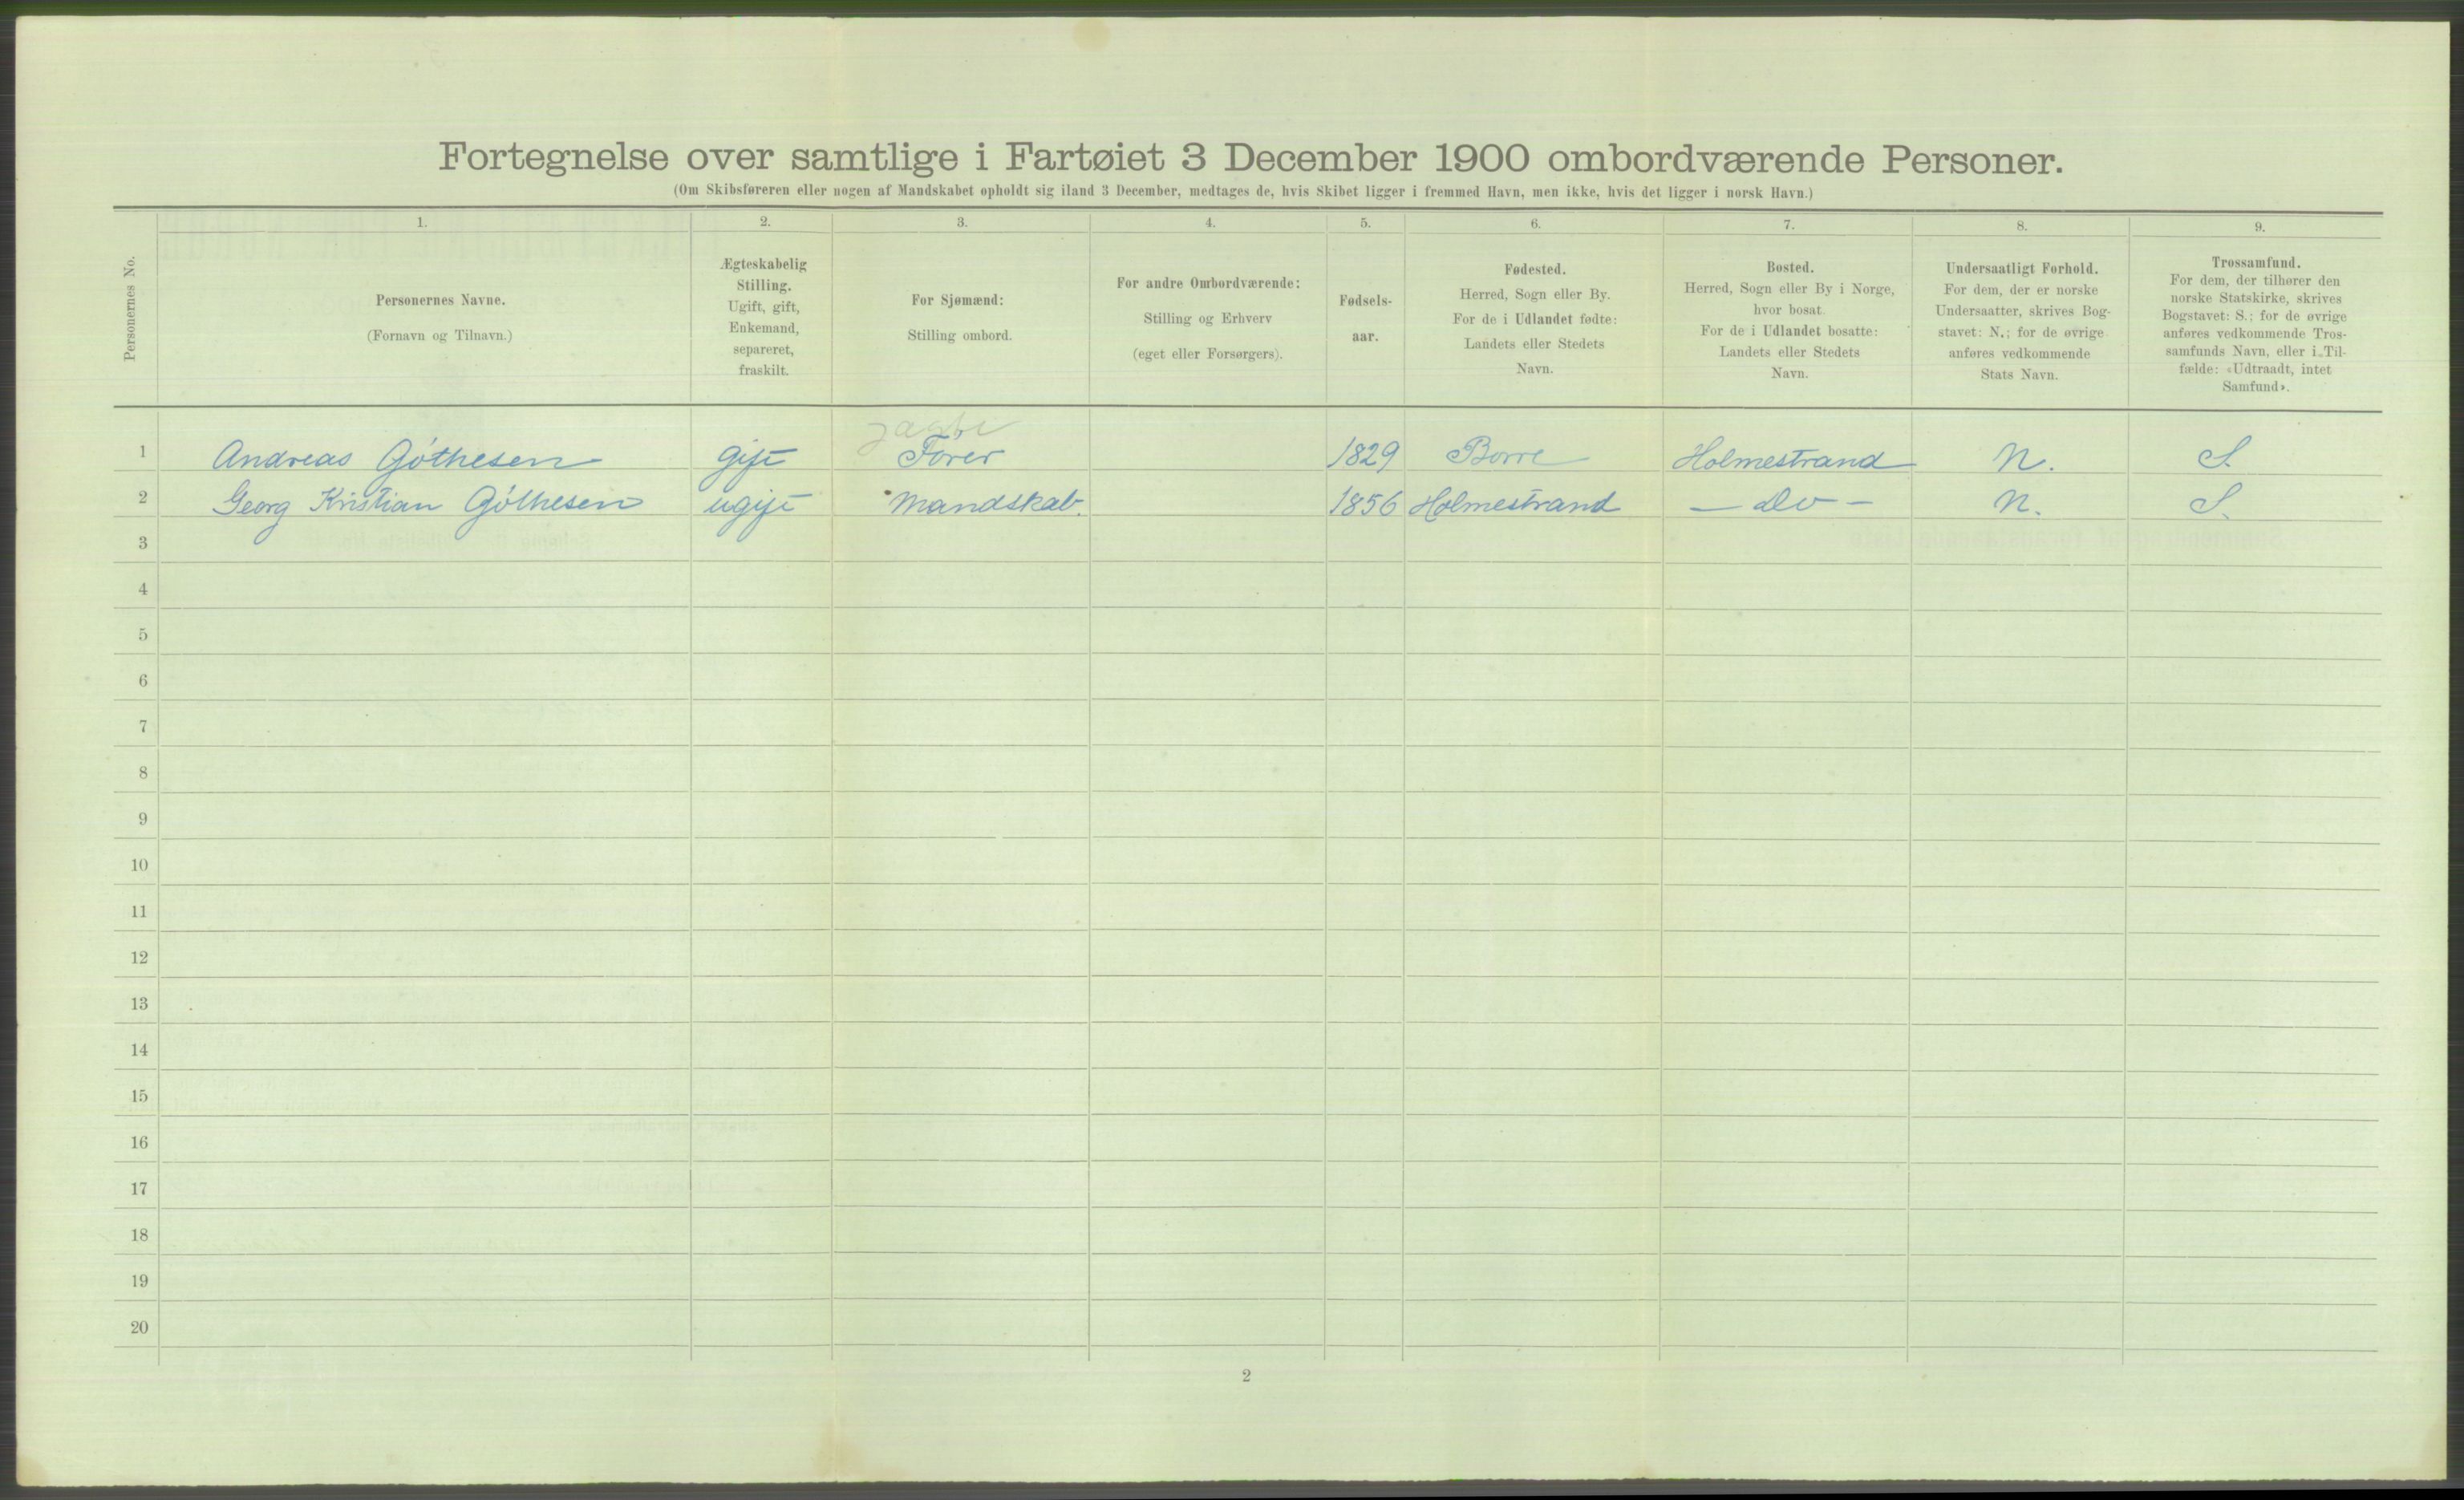 Fortegnelse over samtlige i Fartøiet 3 December 1900 ombordværende Personer.
(Om Skibsføreren eller nogen af Mandskabet opholdt sig iland 3 December, medtages de, hvis Skibet ligger i fremmed Havn, men ikke, hvis det ligger i norsk Havn.)
Personernes No.
1.
Personernes Navne.
(Fornavn og Tilnavn.)
2.
Ægteskabelig
Stilling.
Ugift, gift,
Enkemand,
separeret,
fraskilt.
3.
For Sjømænd:
Stilling ombord.
4.
For andre Ombordværende:
Stilling og Erhverv
(eget eller Forsørgers).
5.
Fødsels-
aar.
6.
Fødested.
Herred, Sogn eller By.
For de i Udlandet fødte:
Landets eller Stedets
Navn.
7.
Bosted.
Herred, Sogn eller By i Norge,
hvor bosat.
For de i Udlandet bosatte:
Landets eller Stedets
Navn.
8.
Undersaatligt Forhold.
For dem, der er norske
Undersaatter, skrives Bog-
stavet: N.; for de øvrige
anføres vedkommende
Stats Navn.
9.
Trossamfund.
For dem, der tilhører den
norske Statskirke, skrives
Bogstavet: S.; for de øvrige
anføres vedkommende Tros-
samfunds Navn, eller i Til-
fælde: «Udtraadt, intet
Samfund».
1 Andreas Góthesen gift Fører 1829 Borre Holmestrand N. S.
2 Georg Kristian Góthesen ugift Mandskab. 1856 Holmestrand — Do — N. S.
3
4
5
6
7
8
9
10
11
12
13
14
15
16
17
18
19
20
2